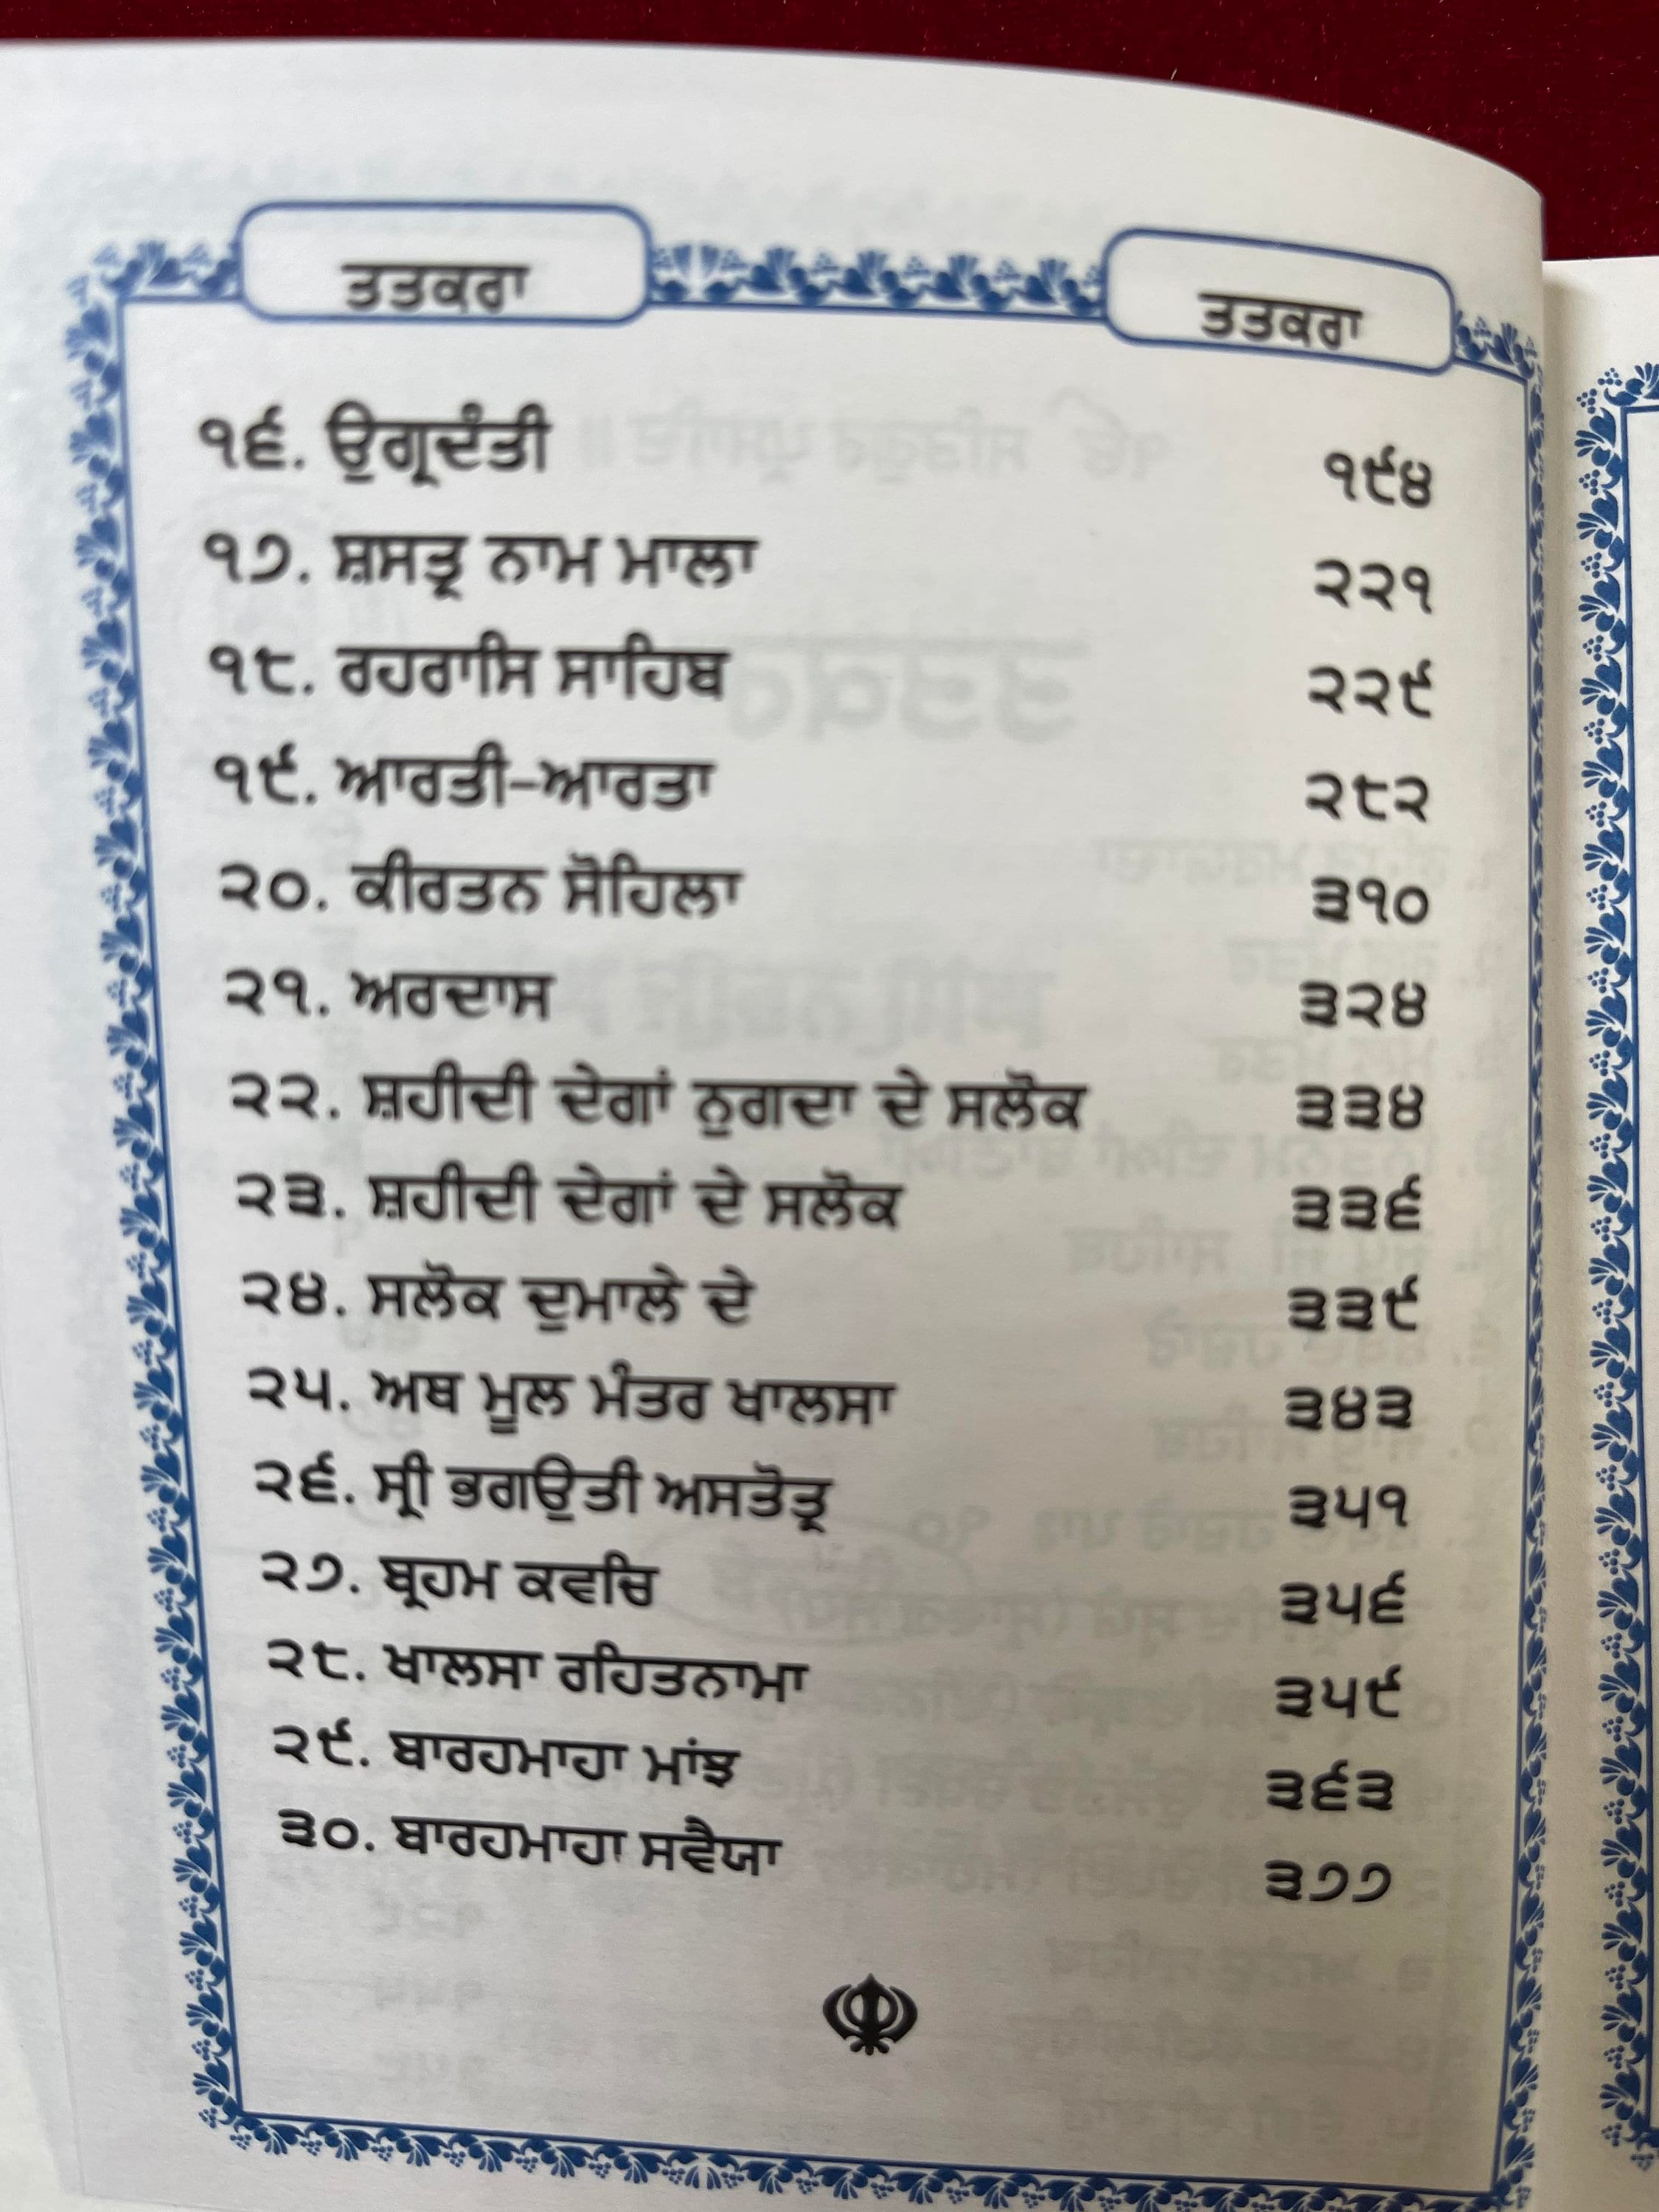 ਤਤਕਰਾ ਤਤਕਰਾ
੧੬. ਉਗ੍ਰਦੰਤੀ ੧੯੪
੧੭. ਸ਼ਸਤ੍ਰ ਨਾਮ ਮਾਲਾ ੨੨੧
੧੮. ਰਹਰਾਸਿ ਸਾਹਿਬ ੨੨੯
੧੯. ਆਰਤੀ-ਆਰਤਾ ੨੮੨
੨੦. ਕੀਰਤਨ ਸੋਹਿਲਾ ੩੧੦
੨੧. ਅਰਦਾਸ ੩੨੪
੨੨. ਸ਼ਹੀਦੀ ਦੇਗਾਂ ਨੁਗਦਾ ਦੇ ਸਲੋਕ ੩੩੪
੨੩. ਸ਼ਹੀਦੀ ਦੇਗਾਂ ਦੇ ਸਲੋਕ ੩੩੬
੨੪. ਸਲੋਕ ਦੁਮਾਲੇ ਦੇ ੩੩੯
੨੫. ਅਥ ਮੂਲ ਮੰਤਰ ਖਾਲਸਾ ੩੪੩
੨੬. ਸ੍ਰੀ ਭਗਉਤੀ ਅਸਤੋਤ੍ਰ ੩੫੧
੨੭. ਬ੍ਰਹਮ ਕਵਚਿ ੩੫੬
੨੮. ਖਾਲਸਾ ਰਹਿਤਨਾਮਾ ੩੫੯
੨੯. ਬਾਰਹਮਾਹਾ ਮਾਂਝ ੩੬੩
੩੦. ਬਾਰਹਮਾਹਾ ਸਵੈਯਾ ੩੭੭